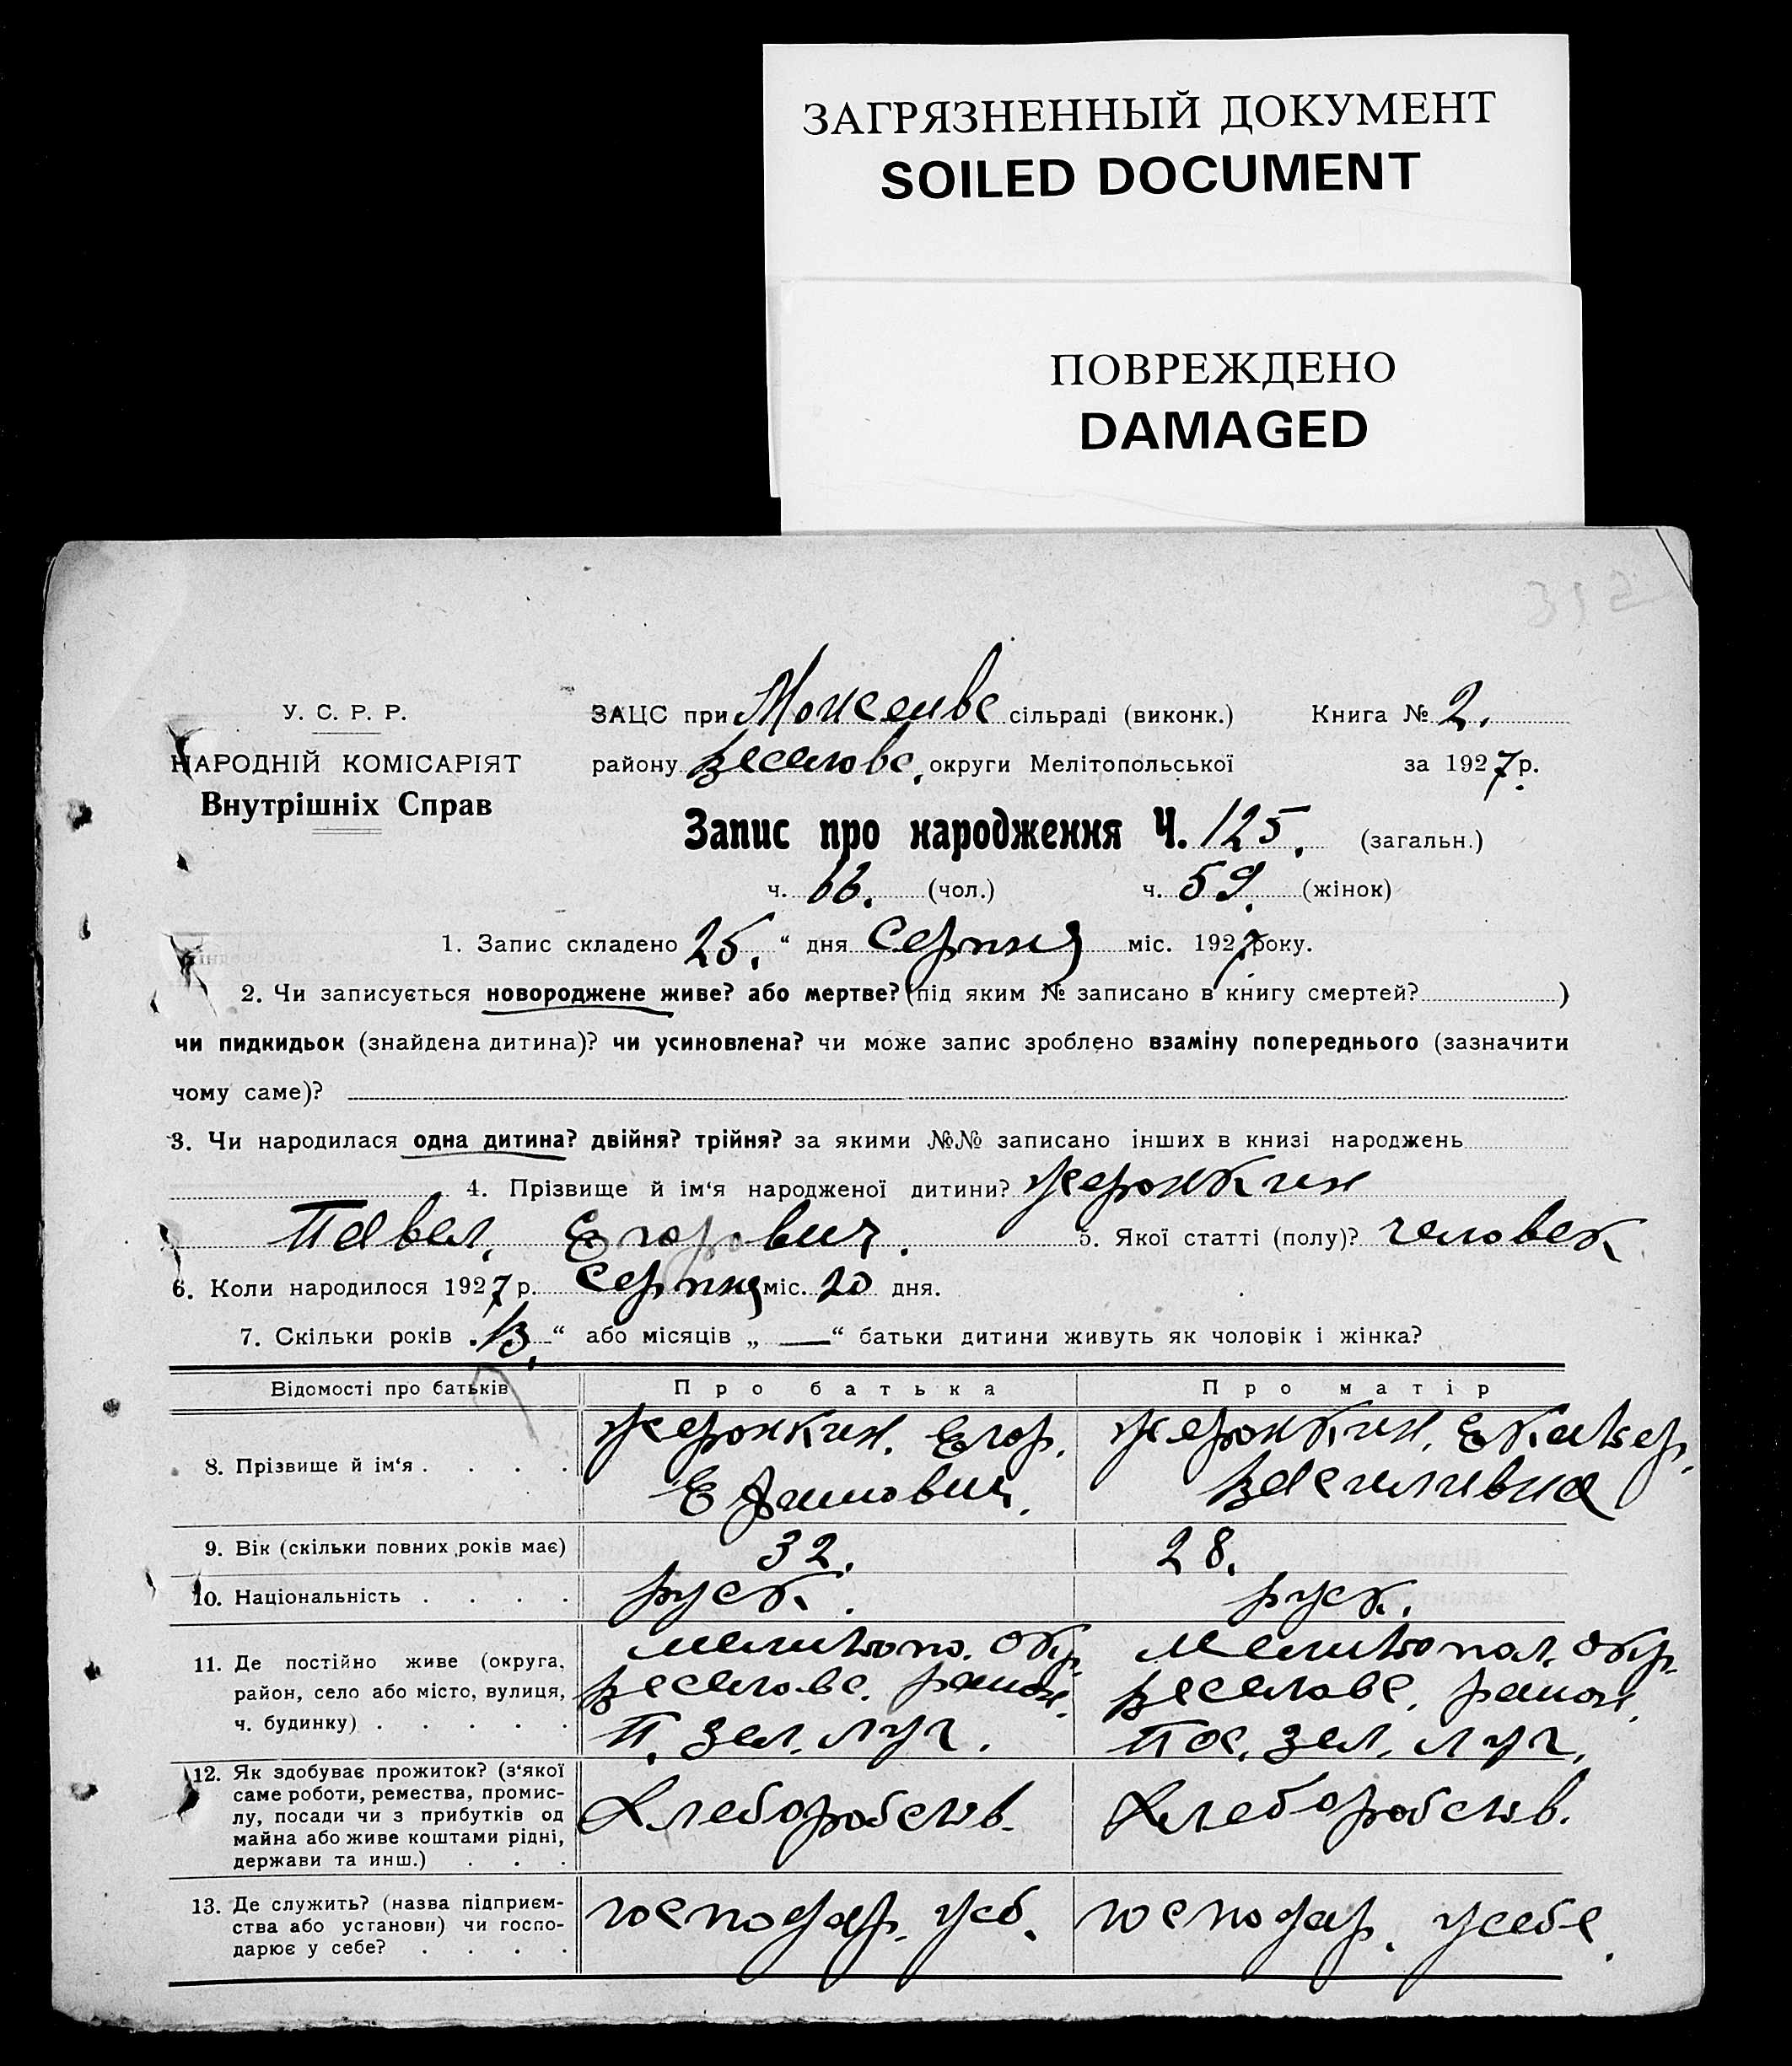 ЗАГРЯЗНЕННЫЙ ДОКУМЕНТ
SOILED DOCUMENT
ПОВРЕЖДЕНО
DAMAGED
У. С. Р. Р.
НАРОДНІЙ КОМІСАРІЯТ
Внутрішніх Справ
ЗАЦС при сільраді (виконк.) Книга № 2.
району Веселовс. округи Мелітопольської за 1927 р.
Запис про народження Ч. 125. (загальн.)
ч. 66. (чол.) ч. 59. (жінок)
1. Запис складено 25. “ дня Серпня міс. 1927 року.
2. Чи записується новороджене живе? або мертве? (під яким № записано в книгу смертей? )
чи пидкидьок (знайдена дитина)? чи усиновлена? чи може запис зроблено взаміну попереднього (зазначити
чому саме)?
3. Чи народилася одна дитина? двійня? трійня? за якими №№ записано інших в книзі народжень
4. Прізвище й ім‘я народженої дитини? Жеронкин
Павел. Егорович. 5. Якої статті (полу)? человек
6. Коли народилося 1927 р. Серпня міс. 20 дня.
7. Скільки років „13.“ або місяців „ — “ батьки дитини живуть як чоловік і жінка?
Відомості про батьків Про батька Про матір
8. Прізвище й ім‘я . . . . Жеронкин. Егор. Жеронкин. Екатер.
Ефимович. Василивна
9. Вік (скільки повних років має) 32. 28.
10. Національність . . . . руск. руск.
11. Де постійно живе (округа, район, село або місто, вулиця, ч. будинку) . . . . .
Мелитопо. Окр. Мелитопол. Окр.
Веселовс. район. Веселовс. район.
П. Зел. луг. Пос. Зел. луг.
12. Як здобуває прожиток? (з‘якої саме роботи, ремества, промислу, посади чи з прибутків од майна або живе коштами рідні, держави та инш.) . . .
Хлеборобств. Хлеборобств.
13. Де служить? (назва підприємства або установи) чи господарює у себе? . . . .
господар. усб. господар. усебе.